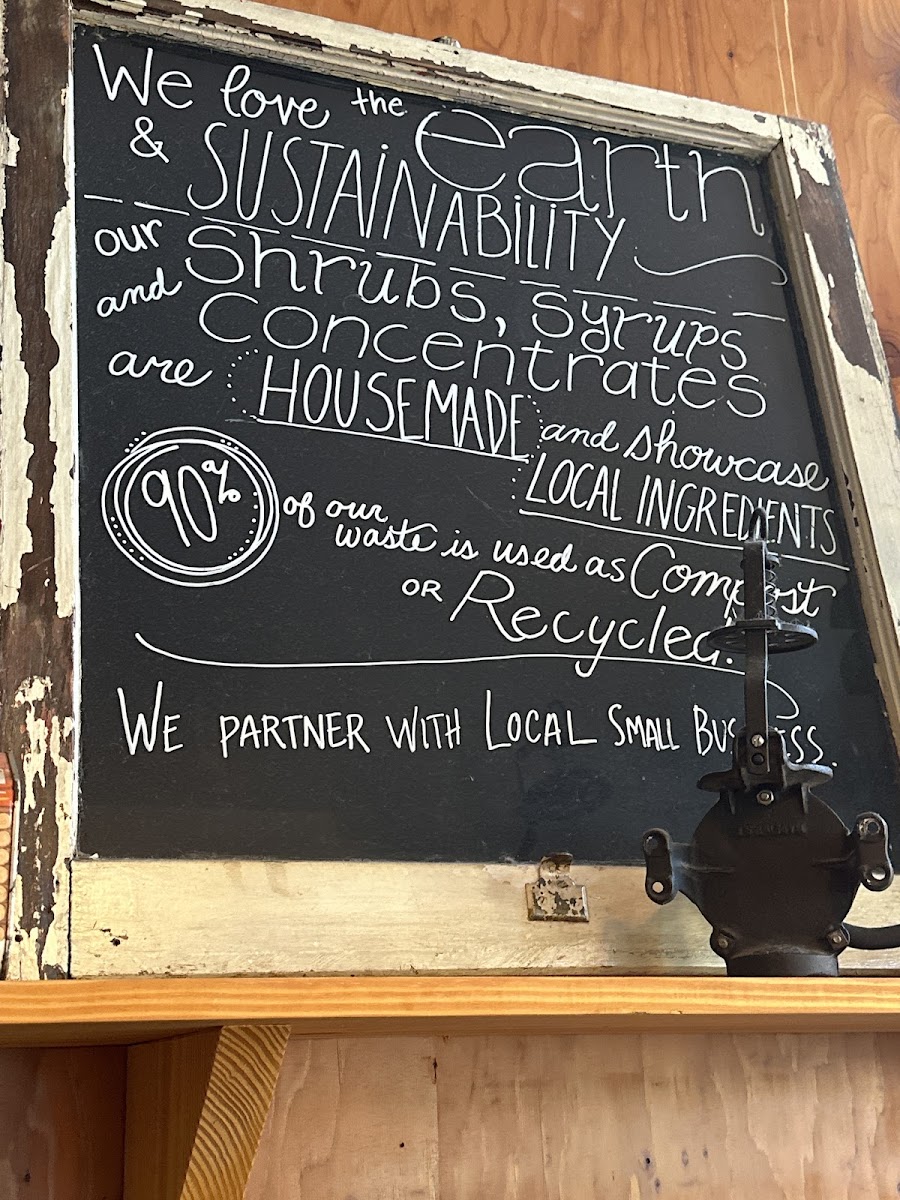 We love the earth
& SUSTAINABILITY
our shrubs, syrups
and concentrates
are HOUSEMADE and showcase
LOCAL INGREDIENTS
90% of our
waste is used as Compost
OR Recycled.
WE PARTNER WITH LOCAL SMALL BUSINESS.